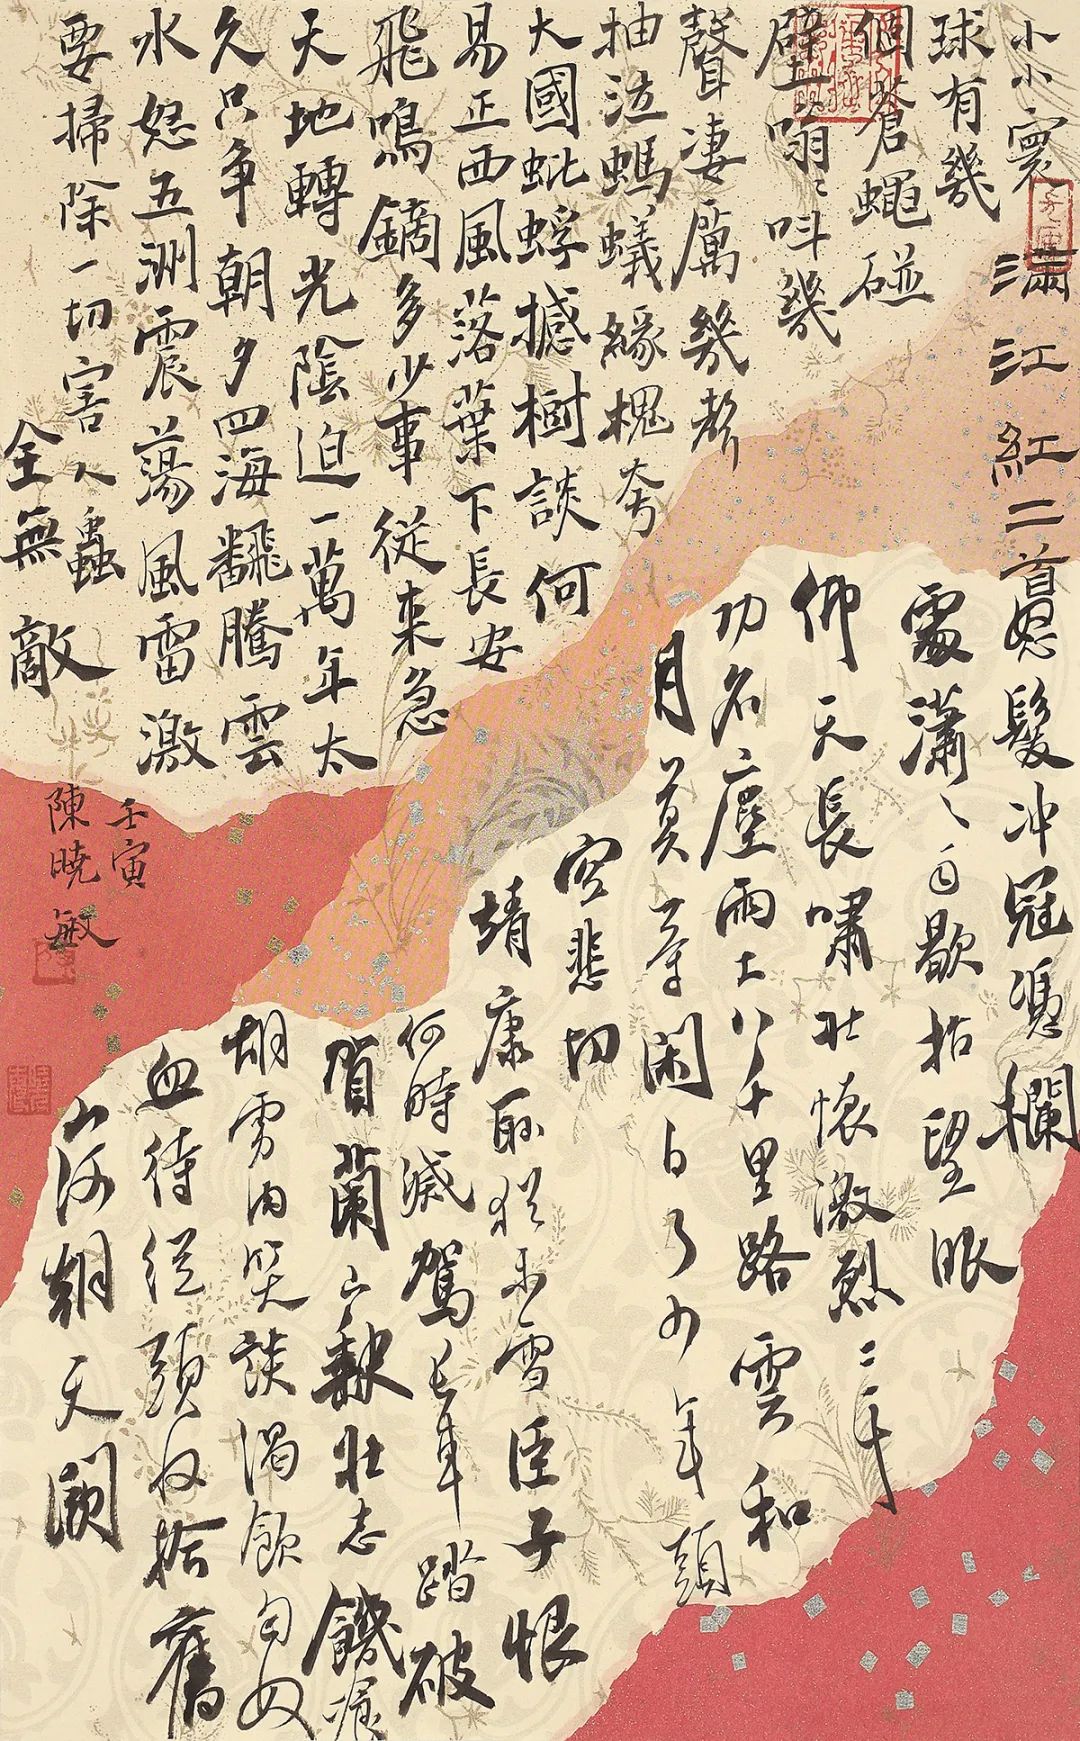 滿江紅二首
小小寰
球有幾
個蒼蠅碰
壁嗡〻叫幾
聲凄厲幾聲
抽泣螞蟻緣槐夸
大國蚍蜉撼樹談何
易正西風落葉下長安
飛鳴鏑多少事從来急
天地轉光陰迫一萬年太
久只争朝夕四海翻騰雲
水怒五洲震蕩風雷激
要掃除一切害人蟲
全無敵
怒髮冲冠憑欄
處瀟〻雨歇抬望眼
仰天長嘯壯懷激烈三十
功名塵與土八千里路雲和
月莫等閑白了少年頭
空悲切
靖康恥猶未雪臣子恨
何時滅駕長車踏破
賀蘭山缺壯志饑湌
胡虜肉笑談渴飲匈奴
血待從頭收拾舊
山河朝天闕
壬寅
陳曉敏